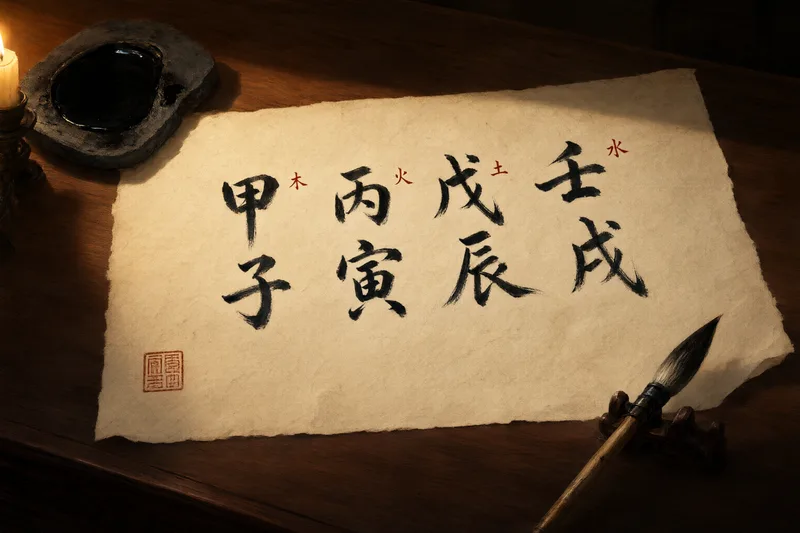 甲木 丙火 戊土 壬水
子 寅 辰 戌